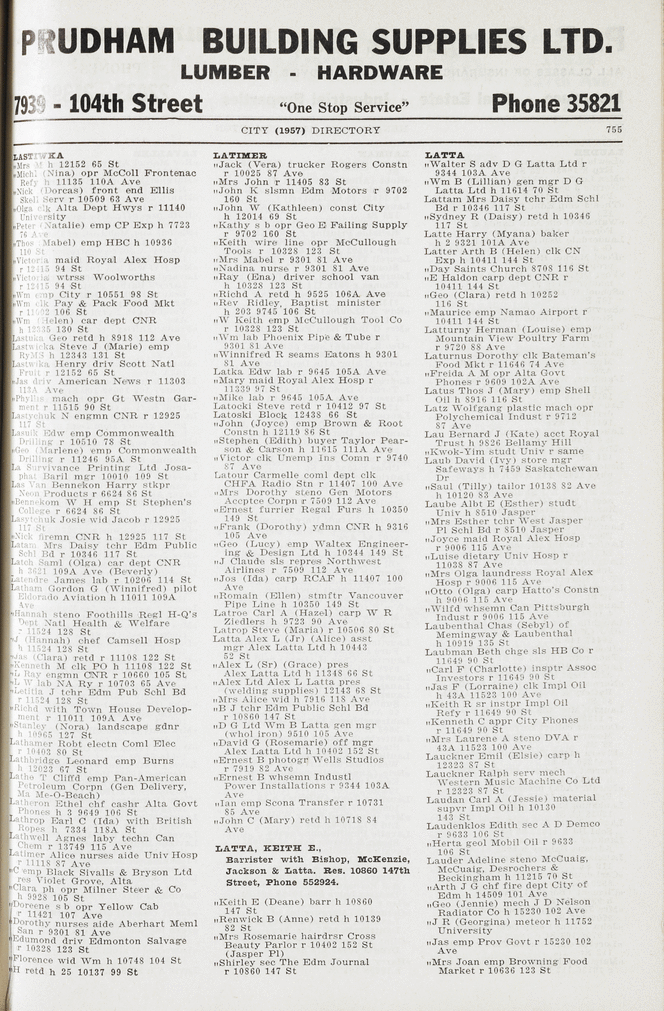 PRUDHAM BUILDING SUPPLIES LTD.
LUMBER - HARDWARE
7939 - 104th Street "One Stop Service" Phone 35821
CITY (1957) DIRECTORY 755
LASTIWKA
„Mrs M h 12152 65 St
„Michl (Nina) opr McColl Frontenac
Refy h 11135 110A Ave
„Nick (Dorcas) front end Ellis
Skell Serv r 10509 63 Ave
„Olga clk Alta Dept Hwys r 11140
University
„Peter (Natalie) emp CP Exp h 7723
76 Ave
„Thos (Mabel) emp HBC h 10936
110 St
„Victoria maid Royal Alex Hosp
r 12415 94 St
„Victoria wtrss Woolworths
r 12415 94 St
„Wm emp City r 10551 98 St
„Wm clk Pay & Pack Food Mkt
r 11502 106 St
„Wm (Helen) car dept CNR
h 12335 130 St
Lastuka Geo retd h 8918 112 Ave
Lastwicka Steve J (Marie) emp
RyMS h 12343 131 St
Lastwika Henry driv Scott Natl
Fruit r 12152 65 St
„Jas driv American News r 11303
113A Ave
„Phyllis mach opr Gt Westn Gar-
ment r 11515 90 St
Lastychuk N engmn CNR r 12925
117 St
Lasuik Edw emp Commonwealth
Drilling r 10510 78 St
„Geo (Marlene) emp Commonwealth
Drilling r 11246 95A St
La Survivance Printing Ltd Josa-
phat Baril mgr 10010 109 St
Las Van Bennekon Harry stkpr
Neon Products r 6624 86 St
„Bennekom W H emp St Stephen's
College r 6624 86 St
Lasytchuk Josie wid Jacob r 12925
117 St
„Nick firemn CNR h 12925 117 St
Latam Mrs Daisy tchr Edm Public
Schl Bd r 10346 117 St
Latch Saml (Olga) car dept CNR
h 3621 109A Ave (Beverly)
Latendre James lab r 10206 114 St
Latham Gordon G (Winnifred) pilot
Eldorado Aviation h 11011 109A
Ave
„Hannah steno Foothills Regl H-Q's
Dept Natl Health & Welfare
r 11524 128 St
„J (Hannah) chef Camsell Hosp
h 11524 128 St
„Jas (Clara) retd r 11108 122 St
„Kenneth M clk PO h 11108 122 St
„L Ray engmn CNR r 10660 105 St
„L W lab NA Ry r 10703 65 Ave
„Letitia J tchr Edm Pub Schl Bd
r 11524 128 St
„Richd with Town House Develop-
ment r 11011 109A Ave
„Stanley (Nora) landscape gdnr
h 10965 127 St
Lathamer Robt electn Coml Elec
r 10403 80 St
Lathbridge Leonard emp Burns
h 12023 67 St
Lathe T Cliffd emp Pan-American
Petroleum Corpn (Gen Delivery,
Al-Me-O-Beach)
Latheron Ethel chf cashr Alta Govt
Phones h 3 9649 106 St
Lathrop Earl C (Ida) with British
Ropes h 7334 118A St
Lathwell Agnes laby techn Can
Chem r 13749 115 Ave
Latimer Alice nurses aide Univ Hosp
r 11118 87 Ave
„C emp Black Sivalls & Bryson Ltd
res Violet Grove, Alta
„Clara ph opr Milner Steer & Co
h 9928 105 St
„Doreene s b opr Yellow Cab
r 11421 107 Ave
„Dorothy nurses aide Aberhart Meml
San r 9301 81 Ave
„Edumond driv Edmonton Salvage
r 10328 123 St
„Florence wid Wm h 10748 104 St
„H retd h 25 10137 99 St
LATIMER
„Jack (Vera) trucker Rogers Constn
r 10025 87 Ave
„Mrs John r 11405 83 St
„John K slsmn Edm Motors r 9702
160 St
„John W (Kathleen) const City
h 12014 69 St
„Kathy s b opr Geo E Failing Supply
r 9702 160 St
„Keith wire line opr McCullough
Tools r 10328 123 St
„Mrs Mabel r 9301 81 Ave
„Nadina nurse r 9301 81 Ave
„Ray (Ena) driver school van
h 10328 123 St
„Richd A retd h 9525 106A Ave
„Rev Ridley, Baptist minister
h 203 9745 106 St
„W Keith emp McCullough Tool Co
r 10328 123 St
„Wm lab Phoenix Pipe & Tube r
9301 81 Ave
„Winnifred R seams Eatons h 9301
81 Ave
Latka Edw lab r 9645 105A Ave
„Mary maid Royal Alex Hosp r
11339 97 St
„Mike lab r 9645 105A Ave
Latocki Steve retd r 10412 97 St
Latoski Block 12438 66 St
„John (Joyce) emp Brown & Root
Constn h 12119 86 St
„Stephen (Edith) buyer Taylor Pear-
son & Carson h 11615 111A Ave
„Victor clk Unemp Ins Comn r 9740
87 Ave
Latour Carmelle coml dept clk
CHFA Radio Stn r 11407 100 Ave
„Mrs Dorothy steno Gen Motors
Accptce Corpn r 7509 112 Ave
„Ernest furrier Regal Furs h 10350
149 St
„Frank (Dorothy) ydmn CNR h 9316
105 Ave
„Geo (Lucy) emp Waltex Engineer-
ing & Design Ltd h 10344 149 St
„J Claude sls repres Northwest
Airlines r 7509 112 Ave
„Jos (Ida) carp RCAF h 11407 100
Ave
„Romain (Ellen) stmftr Vancouver
Pipe Line h 10350 149 St
Latroe Carl A (Hazel) carp W R
Ziedlers h 9723 90 Ave
Latrop Steve (Maria) r 10506 80 St
Latta Alex L (Jr) (Alice) asst
mgr Alex Latta Ltd h 10443
52 St
„Alex L (Sr) (Grace) pres
Alex Latta Ltd h 11348 66 St
„Alex Ltd Alex L Latta pres
(welding supplies) 12143 68 St
„Mrs Alice wid h 7916 118 Ave
„B J tchr Edm Public Schl Bd
r 10860 147 St
„D G Ltd Wm B Latta gen mgr
(whol iron) 9510 105 Ave
„David G (Rosemarie) off mgr
Alex Latta Ltd h 10402 152 St
„Ernest B photogr Wells Studios
r 7919 82 Ave
„Ernest B whsemn Industl
Power Installations r 9344 103A
Ave
„Ian emp Scona Transfer r 10731
85 Ave
„John C (Mary) retd h 10718 84
Ave
LATTA, KEITH E.,
Barrister with Bishop, McKenzie,
Jackson & Latta. Res. 10860 147th
Street, Phone 552924.
„Keith E (Deane) barr h 10860
147 St
„Renwick B (Anne) retd h 10139
82 St
„Mrs Rosemarie hairdrsr Cross
Beauty Parlor r 10402 152 St
(Jasper Pl)
„Shirley sec The Edm Journal
r 10860 147 St
LATTA
„Walter S adv D G Latta Ltd r
9344 103A Ave
„Wm B (Lillian) gen mgr D G
Latta Ltd h 11614 70 St
Lattam Mrs Daisy tchr Edm Schl
Bd r 10346 117 St
„Sydney R (Daisy) retd h 10346
117 St
Latte Harry (Myana) baker
h 2 9321 101A Ave
Latter Arth B (Helen) clk CN
Exp h 10411 144 St
„Day Saints Church 8708 116 St
„E Haldon carp dept CNR r
10411 144 St
„Geo (Clara) retd h 10252
116 St
„Maurice emp Namao Airport r
10411 144 St
Latturny Herman (Louise) emp
Mountain View Poultry Farm
r 9720 88 Ave
Laturnus Dorothy clk Bateman's
Food Mkt r 11646 74 Ave
„Freida A M opr Alta Govt
Phones r 9609 102A Ave
Latus Thos J (Mary) emp Shell
Oil h 8916 116 St
Latz Wolfgang plastic mach opr
Polychemical Indust r 9712
87 Ave
Lau Bernard J (Kate) acct Royal
Trust h 9826 Bellamy Hill
„Kwok-Yim studt Univ r same
Laub David (Ivy) store mgr
Safeways h 7459 Saskatchewan
Dr
„Saul (Tilly) tailor 10138 82 Ave
h 10120 83 Ave
Laube Albt E (Esther) studt
Univ h 8510 Jasper
„Mrs Esther tchr West Jasper
Pl Schl Bd r 8510 Jasper
„Joyce maid Royal Alex Hosp
r 9006 115 Ave
„Luise dietary Univ Hosp r
11038 87 Ave
„Mrs Olga laundress Royal Alex
Hosp r 9006 115 Ave
„Otto (Olga) carp Hatto's Constn
h 9006 115 Ave
„Wilfd whsemn Can Pittsburgh
Indust r 9006 115 Ave
Laubenthal Chas (Sebyl) of
Memingway & Laubenthal
h 10919 135 St
Laubman Beth chge sls HB Co r
11649 90 St
„Carl F (Charlotte) insptr Assoc
Investors r 11649 90 St
„Jas F (Lorraine) clk Impl Oil
h 43A 11523 100 Ave
„Keith R sr instpr Impl Oil
Refy r 11649 90 St
„Kenneth C appr City Phones
r 11649 90 St
„Mrs Laurene A steno DVA r
43A 11523 100 Ave
Lauckner Emil (Elsie) carp h
12323 87 St
Lauckner Ralph serv mech
Western Music Machine Co Ltd
r 12323 87 St
Laudan Carl A (Jessie) material
supvr Impl Oil h 10130
143 St
Laudenklos Edith sec A D Demco
r 9633 106 St
„Herta geol Mobil Oil r 9633
106 St
Lauder Adeline steno McCuaig,
McCuaig, Desrochers &
Beckingham h 11215 70 St
„Arth J G chf fire dept City of
Edm h 14509 101 Ave
„Geo (Jennie) mech J D Nelson
Radiator Co h 15230 102 Ave
„J R (Georgina) meteor h 11752
University
„Jas emp Prov Govt r 15230 102
Ave
„Mrs Joan emp Browning Food
Market r 10636 123 St